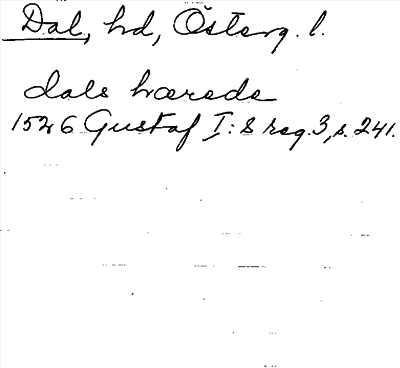 Dal, hd, Österg. l.
dals hærede
1526 Gustaf I:s reg. 3, s. 241.